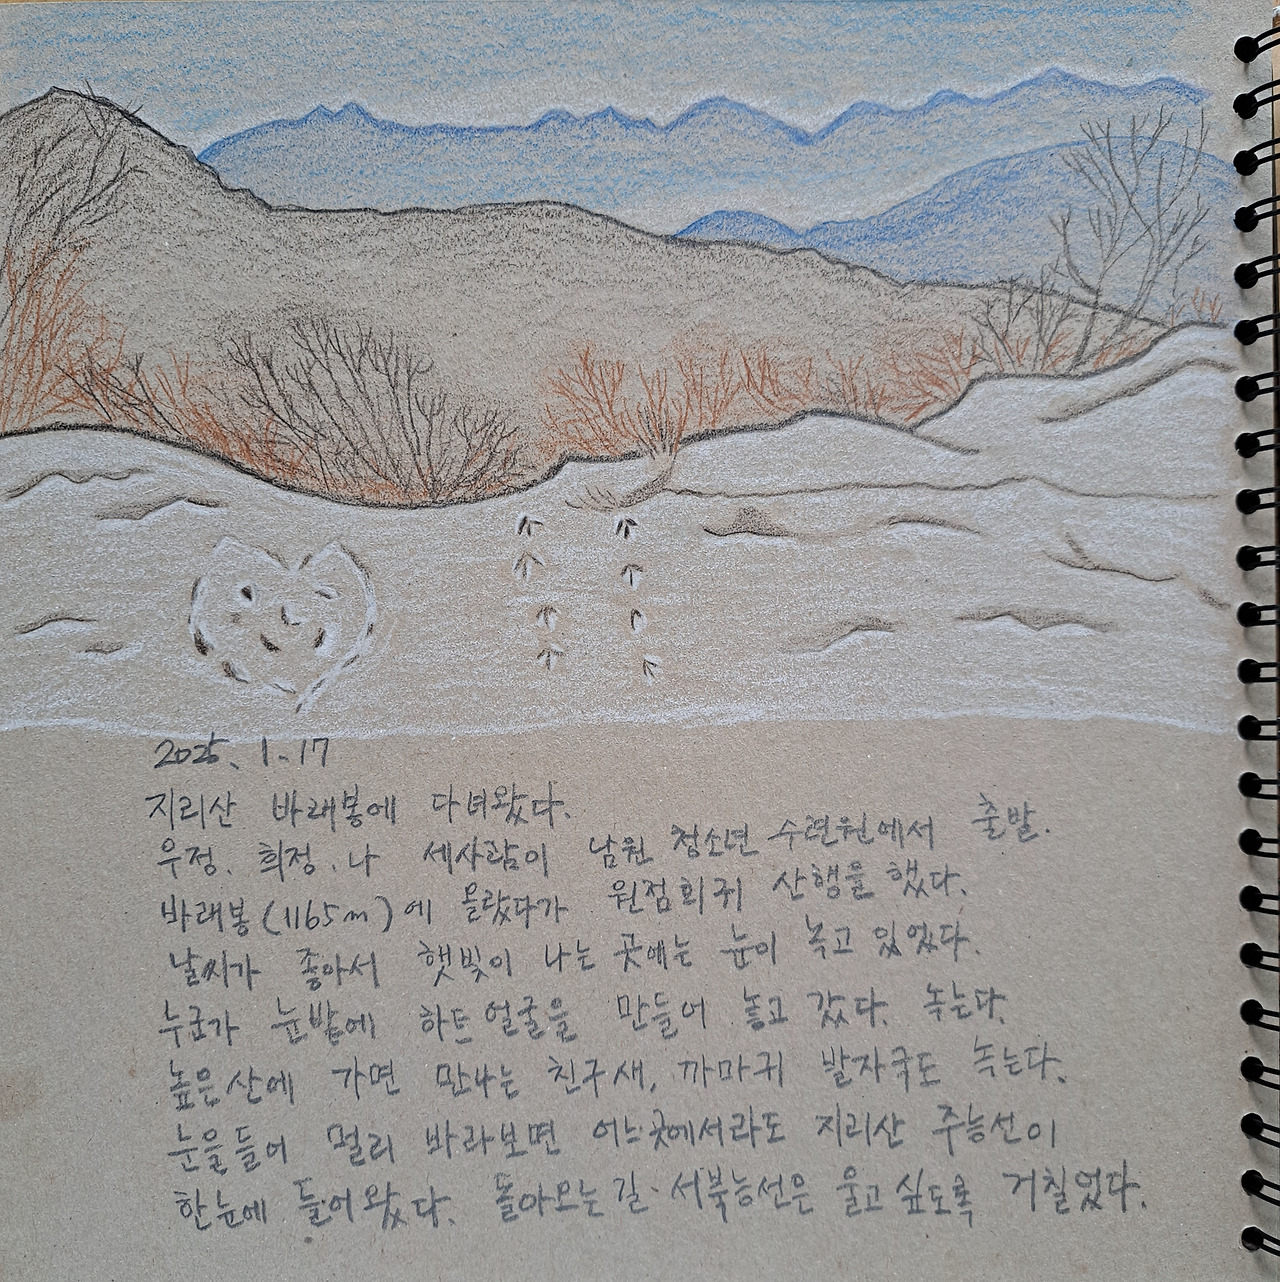 2025. 1. 17
지리산 바래봉에 다녀왔다.
우정. 희정. 나 세사람이 남원 청소년 수련원에서 출발.
바래봉(1165m)에 올랐다가 원점회귀 산행을 했다.
날씨가 좋아서 햇빛이 나는 곳에는 눈이 녹고 있었다.
누군가 눈밭에 하트 얼굴을 만들어 놓고 갔다. 녹는다.
높은산에 가면 만나는 친구새, 까마귀 발자국도 녹는다.
눈을들어 멀리 바라보면 어느곳에서라도 지리산 주능선이
한눈에 들어왔다. 돌아오는길. 서북능선은 울고싶도록 거칠었다.